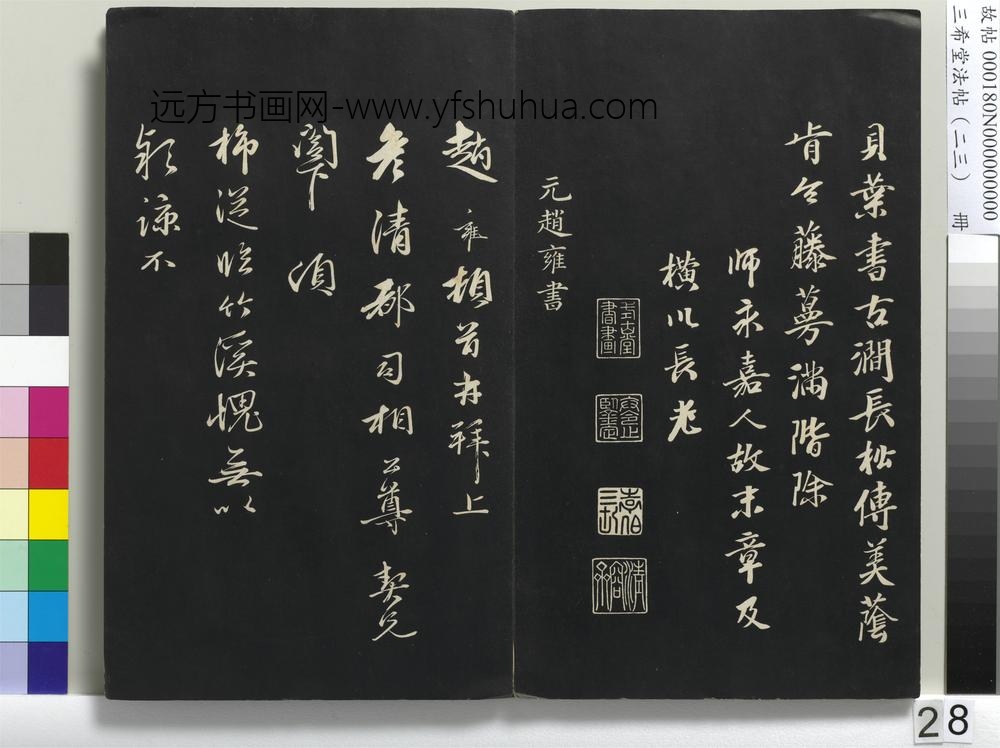 貝葉書古澗長松傳美蔭
肯令藤蔓滿階除
師永嘉人故末章及
橫川長老
元趙雍書
趙雍頓首再拜上
彥清都司相公尊契兄
閣下 須
柿從臨竹溪愧無以
報諒不
远方书画网-www.yfshuhua.com
故帖 000180N000000000
三希堂法帖（二三） 冊
28